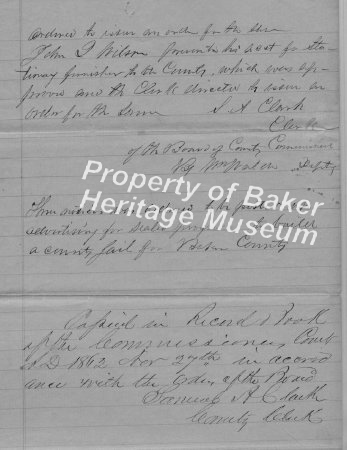 ordered to issue an order for the same
John Q Wilson presents his acct for sta-
tionary furnished to the County, which was ap-
proved and the Clerk directed to issue an
order for the same S. A Clark
Clerk
of the Board of County Commissioners
By Deputy
Property of Baker
Heritage Museum
advertising for sealed to build
a county Jail for Baker County
Copied in Record Book
of the Commissioners Court
A D 1862 Nov 27th in accord
ance with the Order of the Board
Samuel A Clark
County Clerk